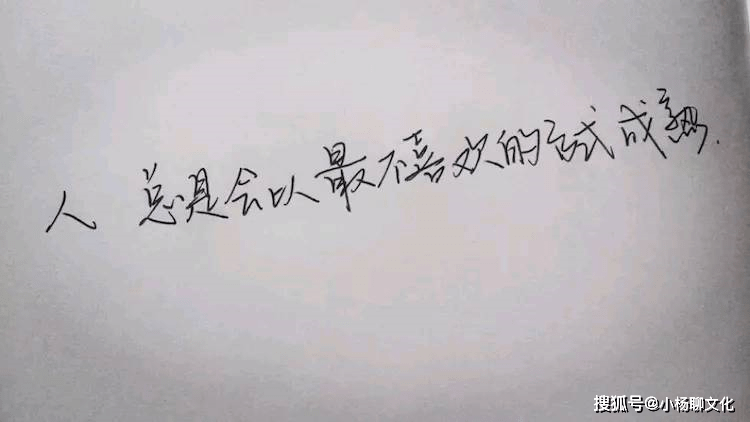 人 总是会以最不喜欢的方式成熟.
搜狐号@小杨聊文化